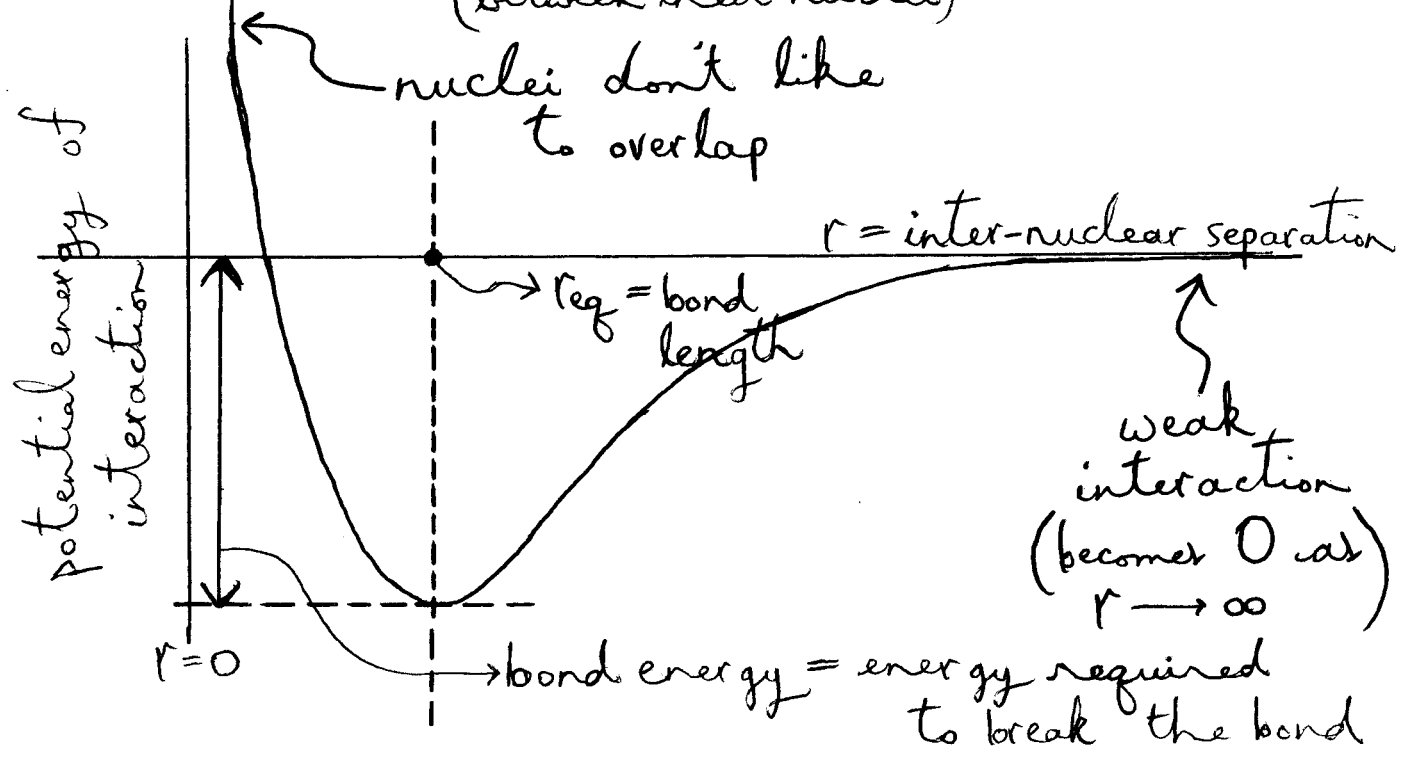 nuclei don't like
to overlap
potential energy of
interaction
r = inter-nuclear separation
req = bond
length
weak
interaction
(becomes 0 as
r → ∞)
r=0
bond energy = energy required
to break the bond